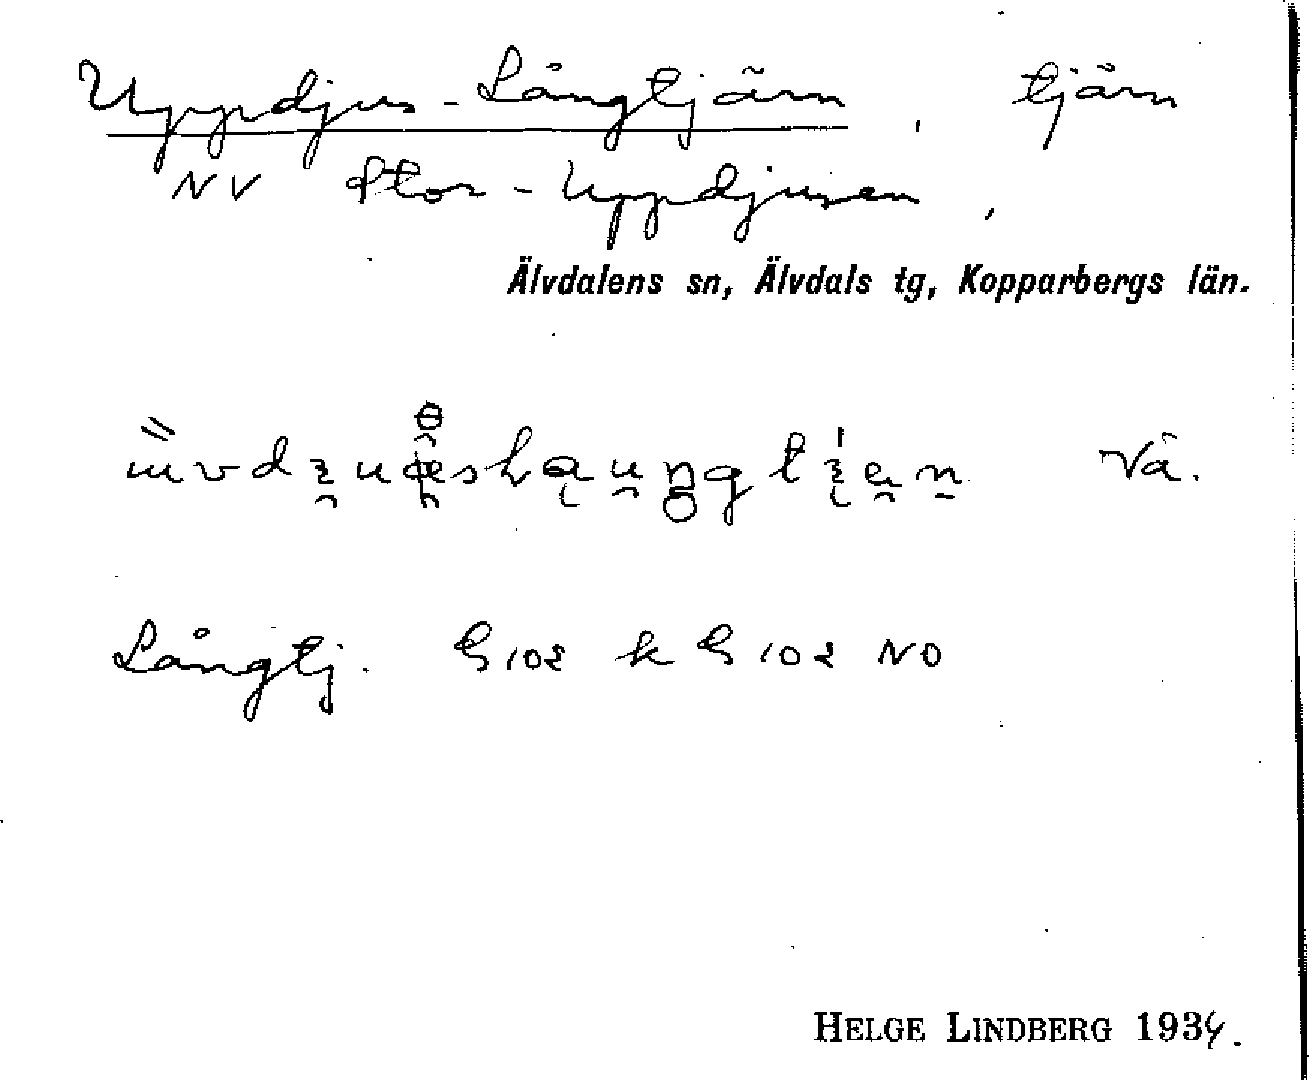 Uppdjus-Långtjärn, tjärn
NV Stor-Uppdjusen,
Älvdalens sn, Älvdals tg, Kopparbergs län.
Vå.
Långtj. G 102 k G 102 NO
HELGE LINDBERG 1934.